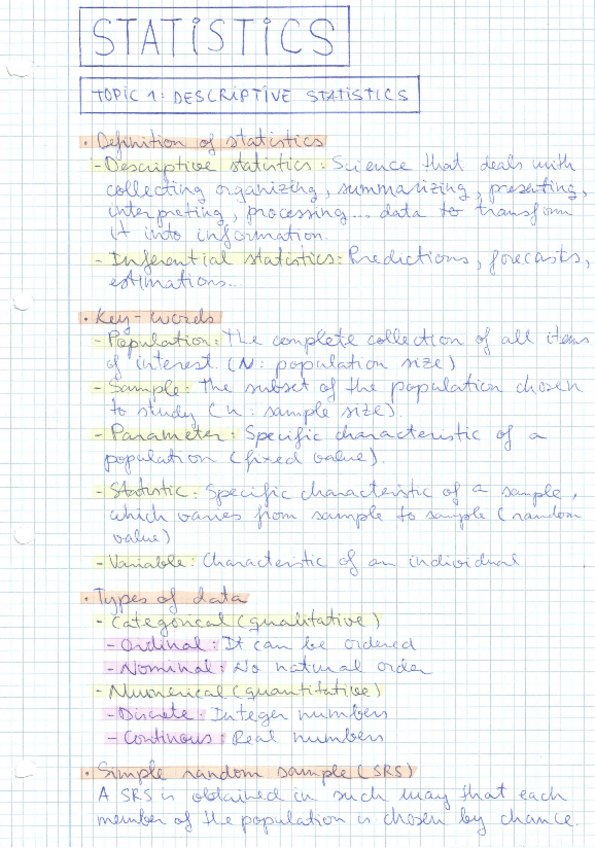 STATISTICS
TOPIC 1: DESCRIPTIVE STATISTICS
· Definition of statistics
- Descriptive statistics: Science that deals with
collecting organizing, summarizing, presenting,
interpreting, processing... data to transform
it into information.
- Inferential statistics: Predictions, forecasts,
estimations...
· Key-words
- Population: The complete collection of all items
of interest. (N: population size)
- Sample: The subset of the population chosen
to study (n: sample size).
- Parameter: Specific characteristic of a
population (fixed value).
- Statistic: Specific characteristic of a sample,
which varies from sample to sample (random
value)
- Variable: Characteristic of an individual
· Types of data
- Categorical (qualitative)
- Ordinal: It can be ordered
- Nominal: No natural order
- Numerical (quantitative)
- Discrete: Integer numbers
- Continous: Real numbers
· Simple random sample (SRS)
A SRS is obtained in such way that each
member of the population is chosen by chance.